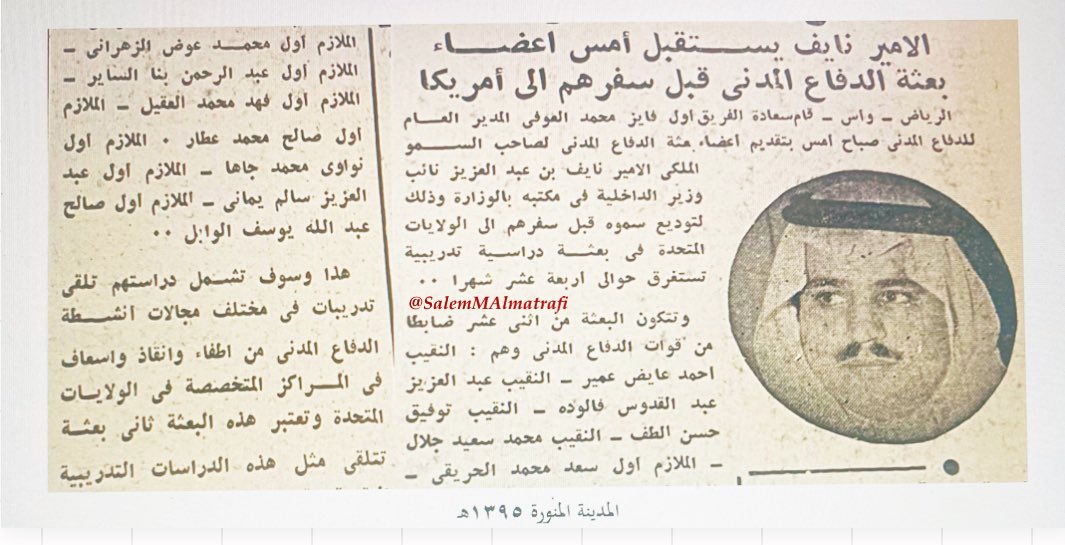 الامير نايف يستقبل أمس اعضاء
بعثة الدفاع المدنى قبل سفرهم الى أمريكا
الرياض - واس - قام سعادة الفريق اول فايز محمد العوفى المدير العام
للدفاع المدنى صباح امس بتقديم أعضاء بعثة الدفاع المدنى لصاحب السمو
الملكى الامير نايف بن عبد العزيز نائب
وزير الداخلية فى مكتبه بالوزارة وذلك
لتوديع سموه قبل سفرهم الى الولايات
المتحدة فى بعثة دراسية تدريبية
تستغرق حوالى اربعة عشر شهرا ٠٠
@SalemMAlmatrafi
وتتكون البعثة من اثنى عشر ضابطا
من قوات الدفاع المدنى وهم : النقيب
احمد عايض عمير - النقيب عبد العزيز
عبد القدوس فالوده - النقيب توفيق
حسن الطف - النقيب محمد سعيد جلال
- الملازم اول سعد محمد الحريقى -
الملازم أول محمد عوض الزهرانى -
الملازم أول عبد الرحمن بنا الساير -
الملازم اول فهد محمد العقيل - الملازم
اول صالح محمد عطار ٠ الملازم اول
نواوى محمد جاها - الملازم اول عبد
العزيز سالم يمانى - الملازم اول صالح
عبد الله يوسف الوابل ٠٠
هذا وسوف تشمل دراستهم تلقى
تدريبات فى مختلف مجالات أنشطة
الدفاع المدنى من اطفاء وانقاذ واسعاف
فى المراكز المتخصصة فى الولايات
المتحدة وتعتبر هذه البعثة ثانى بعثة
تتلقى مثل هذه الدراسات التدريبية
المدينة المنورة ١٣٩٥هـ